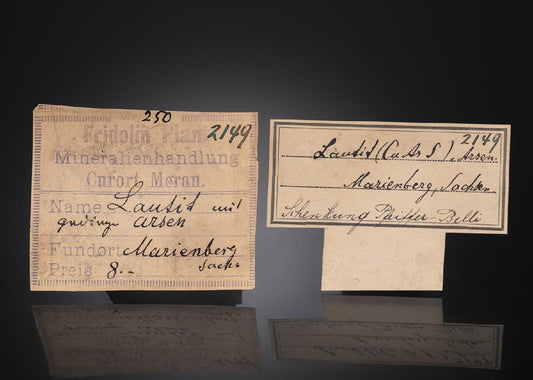 250
2149
Fridolin Plan
Mineralienhandlung
Curort Meran.
Name Lautit mit
gediegen arsen
Fundort Marienberg
Sachs
Preis 8.-
2149
Lautit (CuAsS), Arsen.
Marienberg, Sachsen
Schenkung Belli